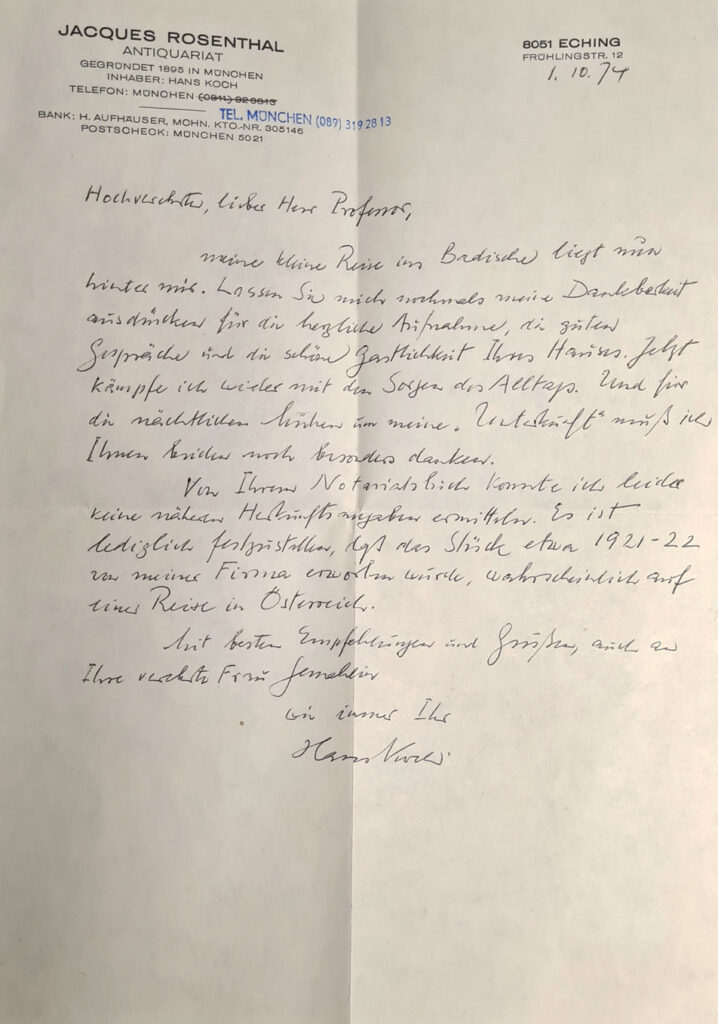 JACQUES ROSENTHAL
ANTIQUARIAT
GEGRÜNDET 1895 IN MÜNCHEN
INHABER: HANS KOCH
TELEFON: MÜNCHEN (0811) 820813
TEL. MÜNCHEN (089) 3192813
BANK: H. AUFHÄUSER, MCHN. KTO.-NR. 305146
POSTSCHECK: MÜNCHEN 5021
8051 ECHING
FRÜHLINGSTR. 12
1. 10. 74
Hochverehrter, lieber Herr Professor,
meine kleine Reise ins Badische liegt nun
hinter mir. Lassen Sie mich nochmals meine Dankbarkeit
ausdrücken für die herzliche Aufnahme, die guten
Gespräche und die schöne Gastlichkeit Ihres Hauses. Jetzt
kämpfe ich wieder mit den Sorgen des Alltags. Und für
die nächtlichen Mühen um meine „Unterkunft“ muß ich
Ihnen beiden noch besonders danken.
Von Ihrem Notariatsbuch konnte ich leider
keine näheren Herkunftsangaben ermitteln. Es ist
lediglich festzustellen, daß das Stück etwa 1921-22
von meiner Firma erworben wurde, wahrscheinlich auf
einer Reise in Österreich.
Mit besten Empfehlungen und Grüßen, auch an
Ihre verehrte Frau Gemahlin
wie immer Ihr
Hans Koch